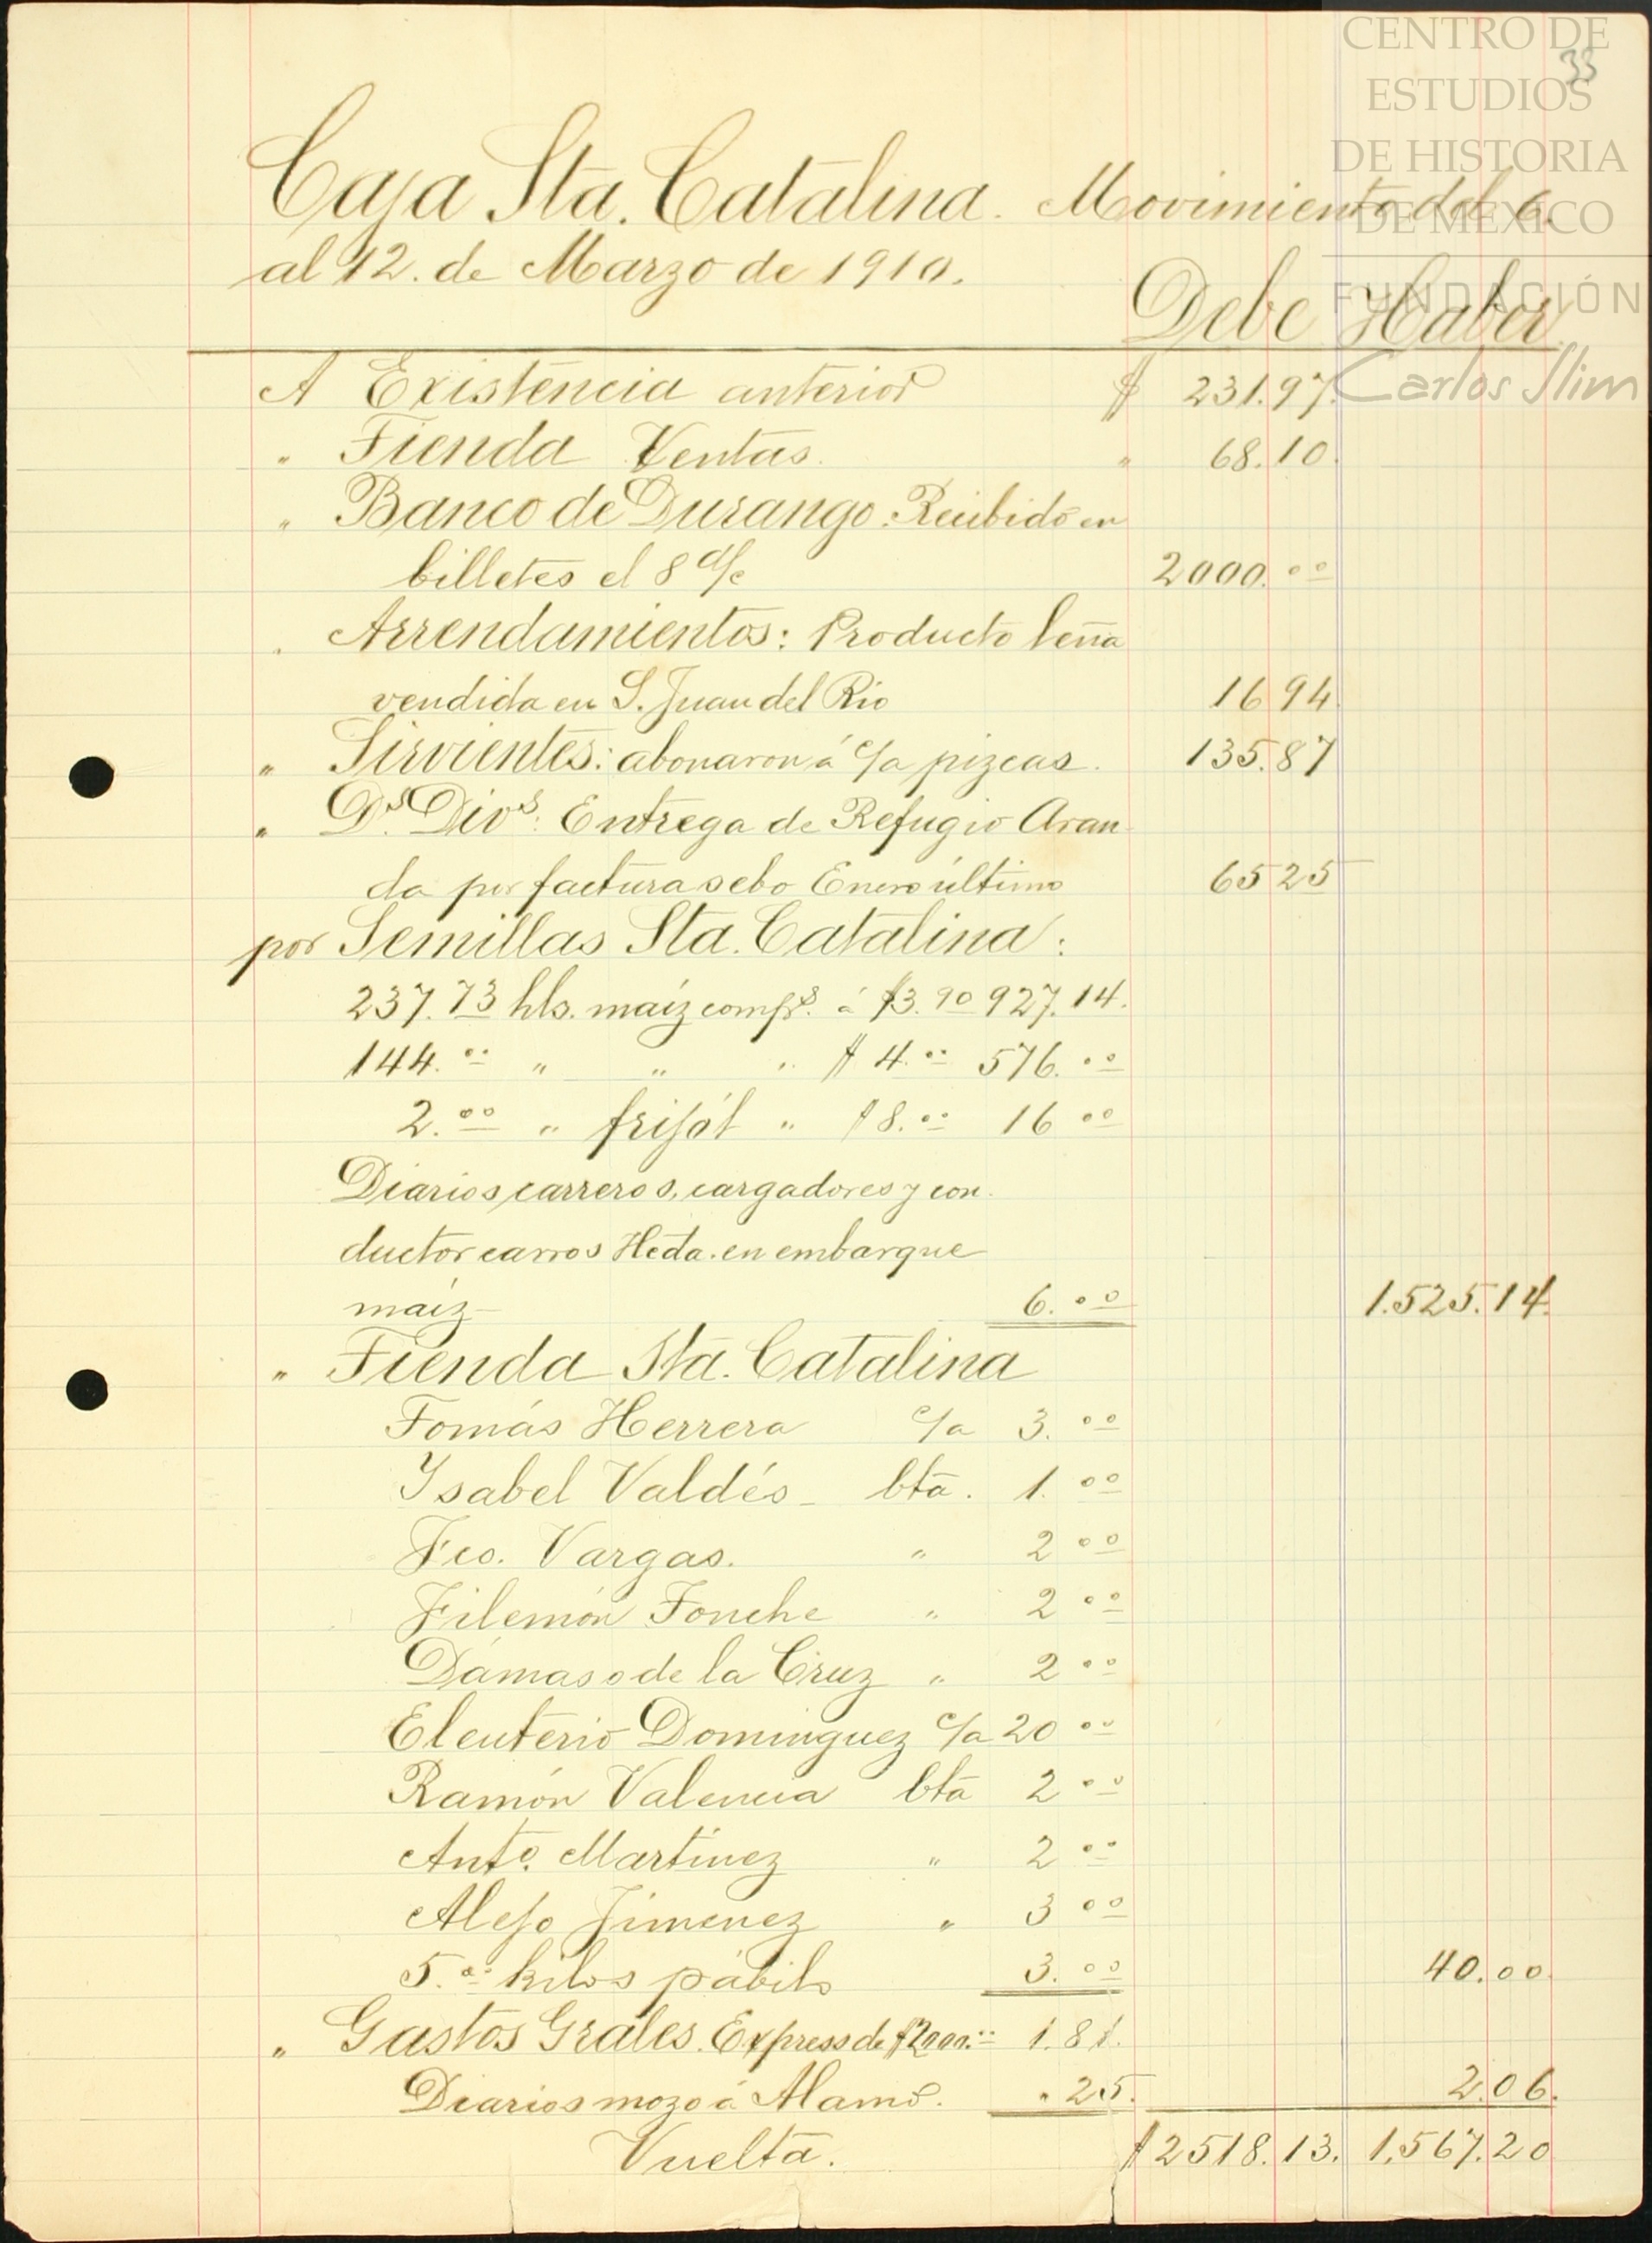 CENTRO DE
ESTUDIOS
DE HISTORIA
DE MEXICO
FUNDACIÓN
Carlos Slim
33
Caja Sta. Catalina. Movimiento del 6.
al 12. de Marzo de 1910.
Debe Haber
A Existencia anterior $ 231.97.
" Tienda Ventas. " 68.10.
" Banco de Durango: Recibido en
billetes el 8 d/c 2000.00
" Arrendamientos: Producto leña
vendida en S. Juan del Rio 16 94
" Sirvientes: abonaron á c/a pizcas. 135.87
" Ds. Divs: Entrega de Refugio Aran-
da por factura sebo Enero último 65 25
por Semillas Sta. Catalina:
237.73 hls. maíz comps. á $3.90 927.14.
144.00 " " " $ 4.00 576.00
2.00 " frijól " $8.00 16 00
Diarios carreros, cargadores y con-
ductor carros Hcda. en embarque
maíz 6.00 1.525.14.
" Tienda Sta. Catalina
Tomás Herrera c/a 3.00
Ysabel Valdés bta. 1.00
Fco. Vargas. " 2 00
Filemón Fouche " 2 00
Dámaso de la Cruz " 2 00
Eleuterio Dominguez c/a 20 00
Ramón Valencia bta 2 00
Anto. Martinez " 2 00
Alejo Jimenez " 3 00
5.00 kilos pábilo 3.00 40.00.
" Gastos Grales. Express de $2000.00 1.81.
Diarios mozo á Alamo. " 25. 2.06.
Vuelta. $ 2518.13. 1,567.20